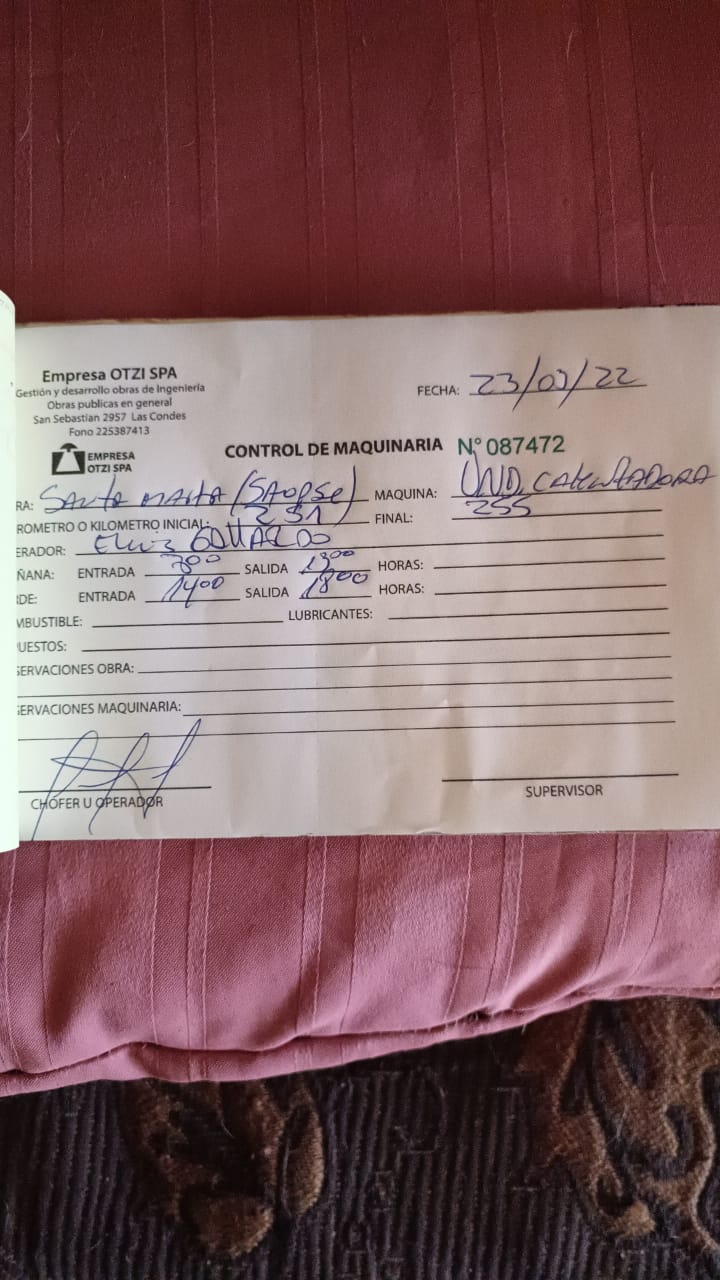 Empresa OTZI SPA
Gestión y desarrollo obras de Ingeniería
Obras publicas en general
San Sebastian 2957 Las Condes
Fono 225387413
FECHA: 23/03/22
EMPRESA
OTZI SPA
CONTROL DE MAQUINARIA N° 087472
RA: SANTA MARTA MAQUINA: UND.
ROMETRO O KILOMETRO INICIAL: 251 FINAL: 255
ERADOR: GALLARDO
ÑANA: ENTRADA 800 SALIDA 1300 HORAS:
DE: ENTRADA 1400 SALIDA 1800 HORAS:
MBUSTIBLE: LUBRICANTES:
UESTOS:
SERVACIONES OBRA:
SERVACIONES MAQUINARIA:
CHOFER U OPERADOR SUPERVISOR